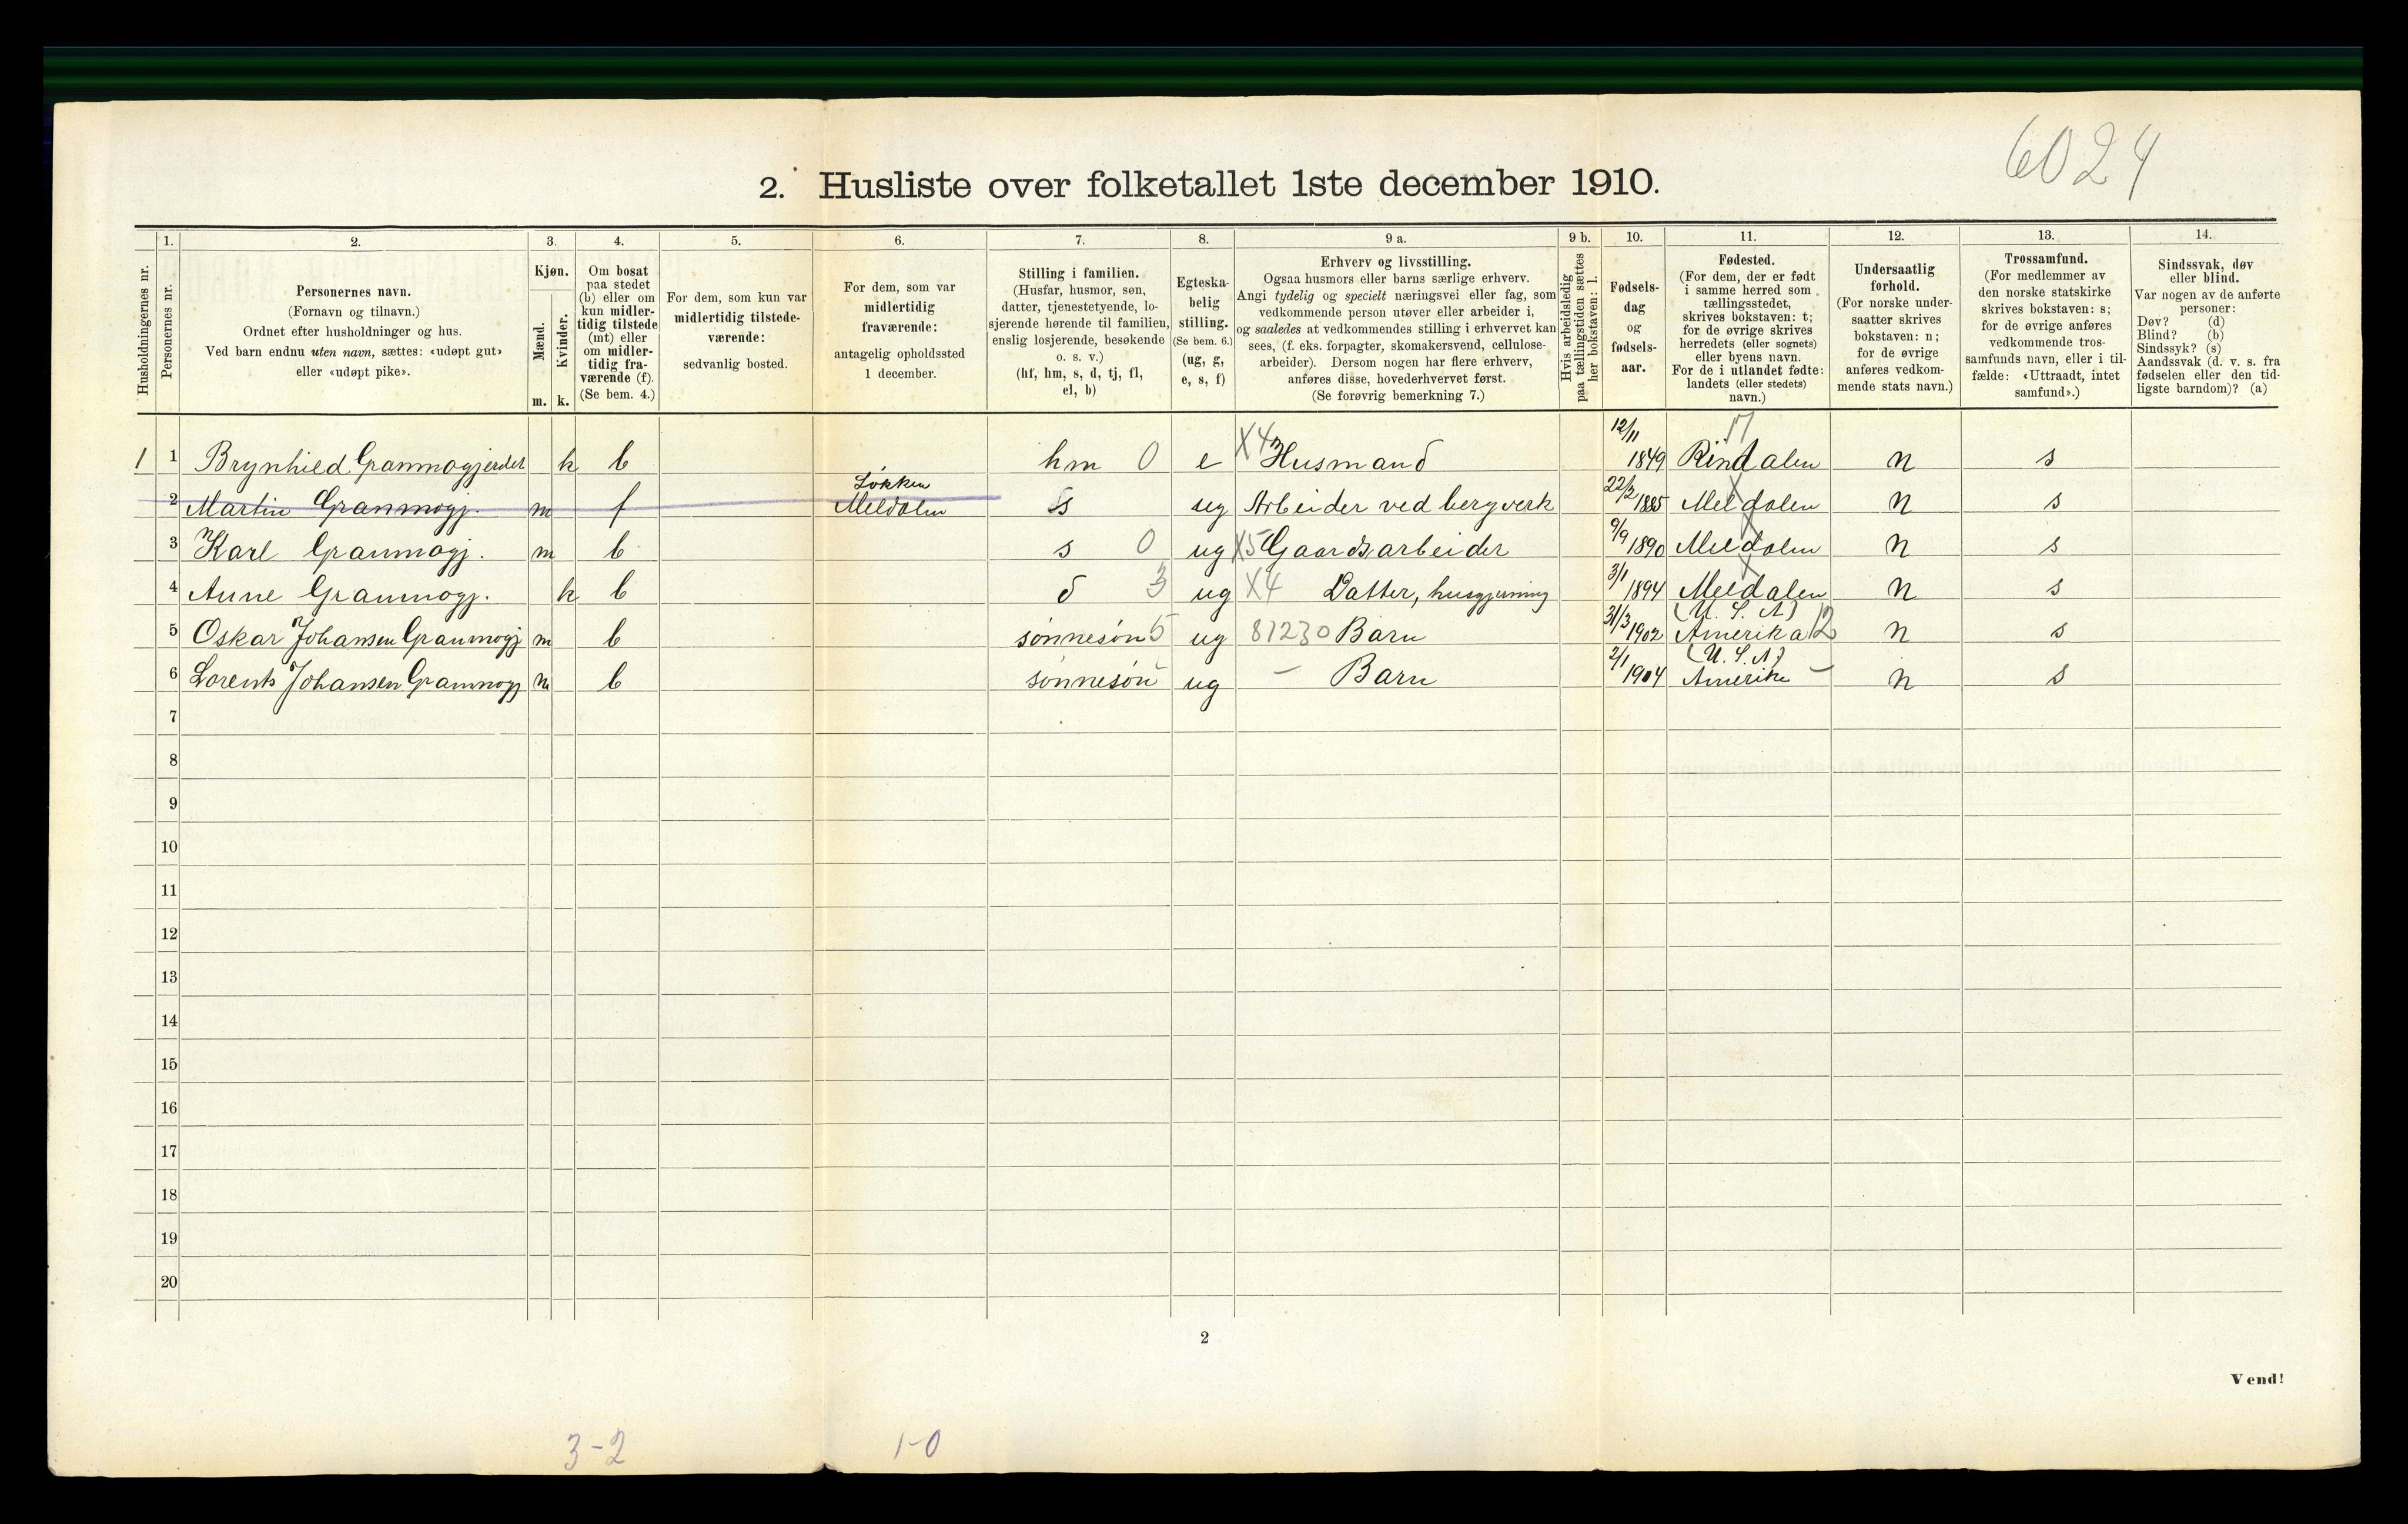 6024
2. Husliste over folketallet 1ste december 1910.
Husholdningernes nr.
1.
Personernes nr.
2.
Personernes navn.
(Fornavn og tilnavn.)
Ordnet efter husholdninger og hus.
Ved barn endnu uten navn, sættes: «udøpt gut»
eller «udøpt pike».
3.
Kjøn.
Mænd.
Kvinder.
m. k.
4.
Om bosat
paa stedet
(b) eller om
kun midler-
tidig tilstede
(mt) eller
om midler-
tidig fra-
værende (f).
(Se bem. 4.)
5.
For dem, som kun var
midlertidig tilstede-
værende:
sedvanlig bosted.
6.
For dem, som var
midlertidig
fraværende:
antagelig opholdssted
1 december.
7.
Stilling i familien.
(Husfar, husmor, søn,
datter, tjenestetyende, lo-
sjerende hørende til familien,
enslig losjerende, besøkende
o. s. v.)
(hf, hm, s, d, tj, fl,
el, b)
8.
Egteska-
belig
stilling.
(Se bem. 6.)
(ug, g,
e, s, f)
9 a.
Erhverv og livsstilling.
Ogsaa husmors eller barns særlige erhverv.
Angi tydelig og specielt næringsvei eller fag, som
vedkommende person utøver eller arbeider i,
og saaledes at vedkommendes stilling i erhvervet kan
sees, (f. eks. forpagter, skomakersvend, cellulose-
arbeider). Dersom nogen har flere erhverv,
anføres disse, hovederhvervet først.
(Se forøvrig bemerkning 7.)
9 b.
Hvis arbeidsledig
paa tællingstiden sættes
her bokstaven: l.
10.
Fødsels-
dag
og
fødsels-
aar.
11.
Fødested.
(For dem, der er født
i samme herred som
tællingsstedet,
skrives bokstaven: t;
for de øvrige skrives
herredets (eller sognets)
eller byens navn.
For de i utlandet fødte:
landets (eller stedets)
navn.)
12.
Undersaatlig
forhold.
(For norske under-
saatter skrives
bokstaven: n;
for de øvrige
anføres vedkom-
mende stats navn.)
13.
Trossamfund.
(For medlemmer av
den norske statskirke
skrives bokstaven: s;
for de øvrige anføres
vedkommende tros-
samfunds navn, eller i til-
fælde: «Uttraadt, intet
samfund».)
14.
Sindssvak, døv
eller blind.
Var nogen av de anførte
personer:
Døv? (d)
Blind? (b)
Sindssyk? (s)
Aandssvak (d. v. s. fra
fødselen eller den tid-
ligste barndom)? (a)
1 1 Brynhild Granmogjerdet k b hm 0 e X4 Husmand 12/11 1849 17 Rindalen n s
2 Martin Granmogj. m f Løkken Meldalen s ug Arbeider ved bergverk 22/2 1885 Meldalen n s
3 Karl Granmogj. m b s 0 ug X5 Gaardsarbeider 9/9 1890 Meldalen n s
4 Anne Granmogj. k b d 3 ug X4 Datter, husgjerning 3/1 1894 Meldalen n s
5 Oskar Johansen Granmogj m b sønnesøn 5 ug 81230 Barn 31/3 1902 (U. S. A) Amerika 12 n s
6 Lorents Johansen Granmogj m b sønnesøn ug – Barn 2/1 1904 (U. S. A) Amerika – n s
7
8
9
10
11
12
13
14
15
16
17
18
19
20
2
Vend!
3-2 1-0